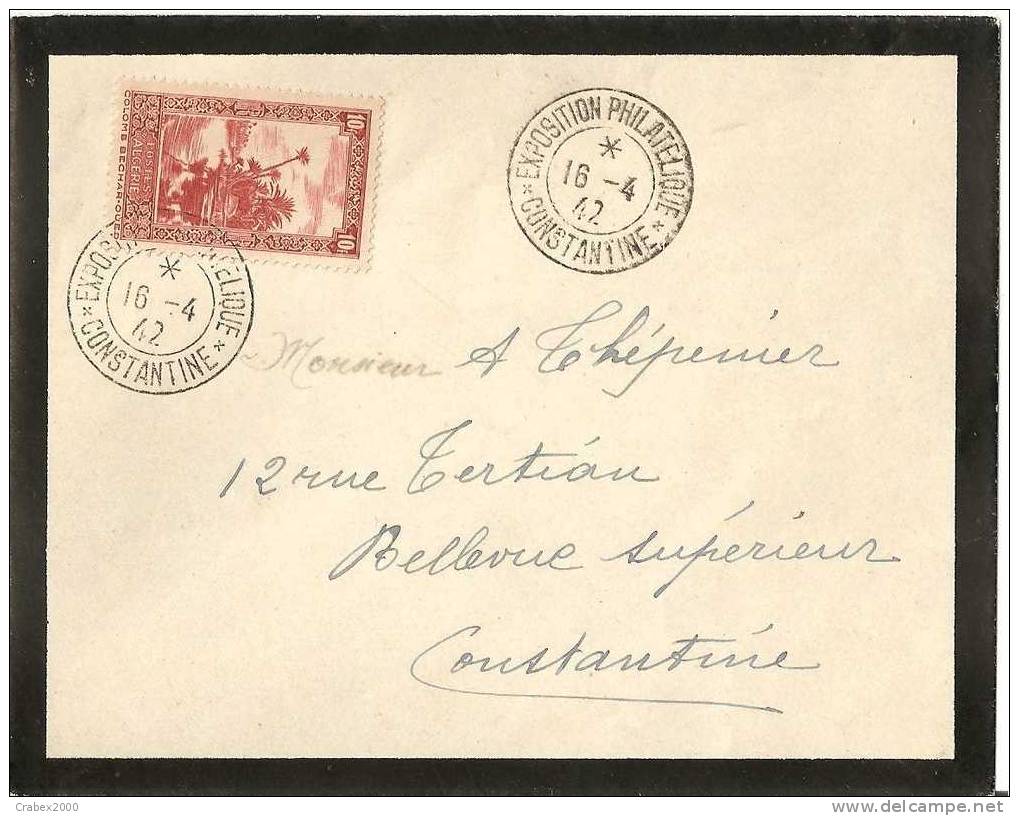 10f
POSTES
ALGÉRIE
COLOMB BECHAR-OUED
10f
EXPOSITION PHILATELIQUE
* 16 -4 42
* CONSTANTINE *
EXPOSITION PHILATELIQUE
* 16 -4 42
* CONSTANTINE *
Monsieur A Thépenier
12 rue Tertián
Bellevue supérieur
Constantine
Crabex2000
www.delcampe.net